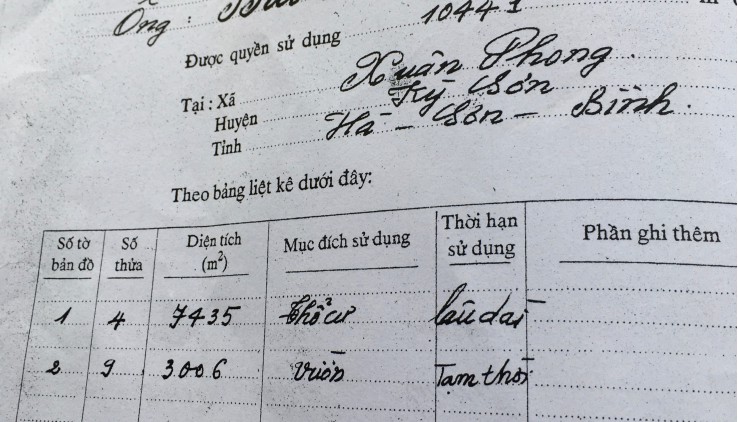 Ông :
Được quyền sử dụng 10441 m
Tại : Xã Xuân Phong
Huyện Kỳ Sơn
Tỉnh Hà - Sơn - Bình.
Theo bảng liệt kê dưới đây:
Số tờ bản đồ Số thửa Diện tích (m²) Mục đích sử dụng Thời hạn sử dụng Phần ghi thêm
1 4 7435 Thổ cư lâu dài
2 9 3006 Vườn Tạm thời